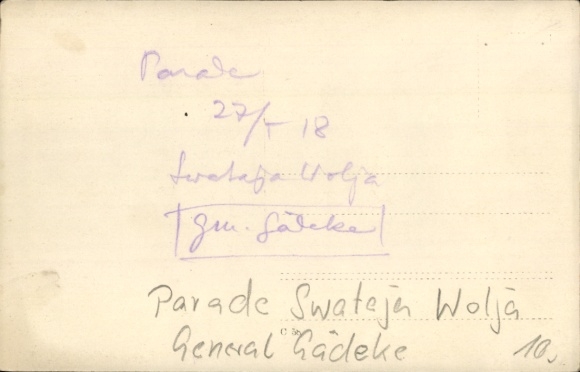 Parade
27/V 18
Swataja Wolja
Gm. Gädeke
Parade Swataja Wolja
General Gädeke 10,